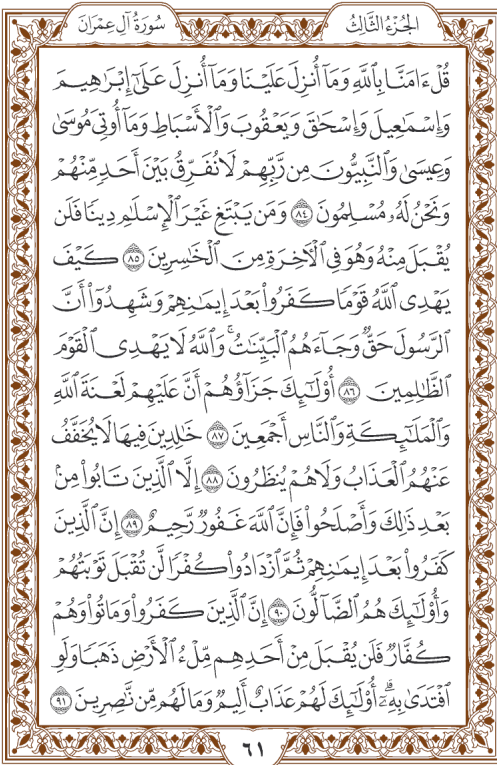 الجُزْءُ الثَّالِثُ
سُورَةُ آلِ عِمْرَانَ
قُلْ ءَامَنَّا بِٱللَّهِ وَمَآ أُنزِلَ عَلَيْنَا وَمَآ أُنزِلَ عَلَىٰٓ إِبْرَٰهِيمَ
وَإِسْمَٰعِيلَ وَإِسْحَٰقَ وَيَعْقُوبَ وَٱلْأَسْبَاطِ وَمَآ أُوتِيَ مُوسَىٰ
وَعِيسَىٰ وَٱلنَّبِيُّونَ مِن رَّبِّهِمْ لَا نُفَرِّقُ بَيْنَ أَحَدٍ مِّنْهُمْ
وَنَحْنُ لَهُۥ مُسْلِمُونَ ٨٤ وَمَن يَبْتَغِ غَيْرَ ٱلْإِسْلَٰمِ دِينًا فَلَن
يُقْبَلَ مِنْهُ وَهُوَ فِي ٱلْأَخِرَةِ مِنَ ٱلْخَٰسِرِينَ ٨٥ كَيْفَ
يَهْدِي ٱللَّهُ قَوْمًا كَفَرُوا۟ بَعْدَ إِيمَٰنِهِمْ وَشَهِدُوٓا۟ أَنَّ
ٱلرَّسُولَ حَقٌّ وَجَآءَهُمُ ٱلْبَيِّنَٰتُ ۚ وَٱللَّهُ لَا يَهْدِي ٱلْقَوْمَ
ٱلظَّٰلِمِينَ ٨٦ أُو۟لَٰٓئِكَ جَزَآؤُهُمْ أَنَّ عَلَيْهِمْ لَعْنَةَ ٱللَّهِ
وَٱلْمَلَٰٓئِكَةِ وَٱلنَّاسِ أَجْمَعِينَ ٨٧ خَٰلِدِينَ فِيهَا لَا يُخَفَّفُ
عَنْهُمُ ٱلْعَذَابُ وَلَا هُمْ يُنظَرُونَ ٨٨ إِلَّا ٱلَّذِينَ تَابُوا۟ مِنۢ
بَعْدِ ذَٰلِكَ وَأَصْلَحُوا۟ فَإِنَّ ٱللَّهَ غَفُورٌ رَّحِيمٌ ٨٩ إِنَّ ٱلَّذِينَ
كَفَرُوا۟ بَعْدَ إِيمَٰنِهِمْ ثُمَّ ٱزْدَادُوا۟ كُفْرًا لَّن تُقْبَلَ تَوْبَتُهُمْ
وَأُو۟لَٰٓئِكَ هُمُ ٱلضَّآلُّونَ ٩٠ إِنَّ ٱلَّذِينَ كَفَرُوا۟ وَمَاتُوا۟ وَهُمْ
كُفَّارٌ فَلَن يُقْبَلَ مِنْ أَحَدِهِم مِّلْءُ ٱلْأَرْضِ ذَهَبًا وَلَوِ
ٱفْتَدَىٰ بِهِۦٓ ۗ أُو۟لَٰٓئِكَ لَهُمْ عَذَابٌ أَلِيمٌ وَمَا لَهُم مِّن نَّٰصِرِينَ ٩١
٦١